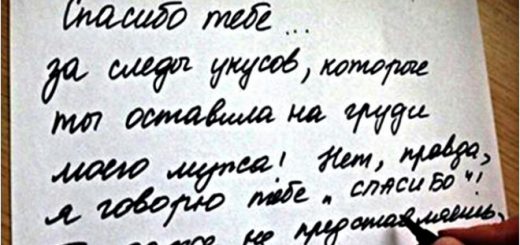 Спасибо тебе...
за следы укусов, которые
ты оставила на груди
моего мужа! Нет, правда,
я говорю тебе „СПАСИБО"!
не представляешь,